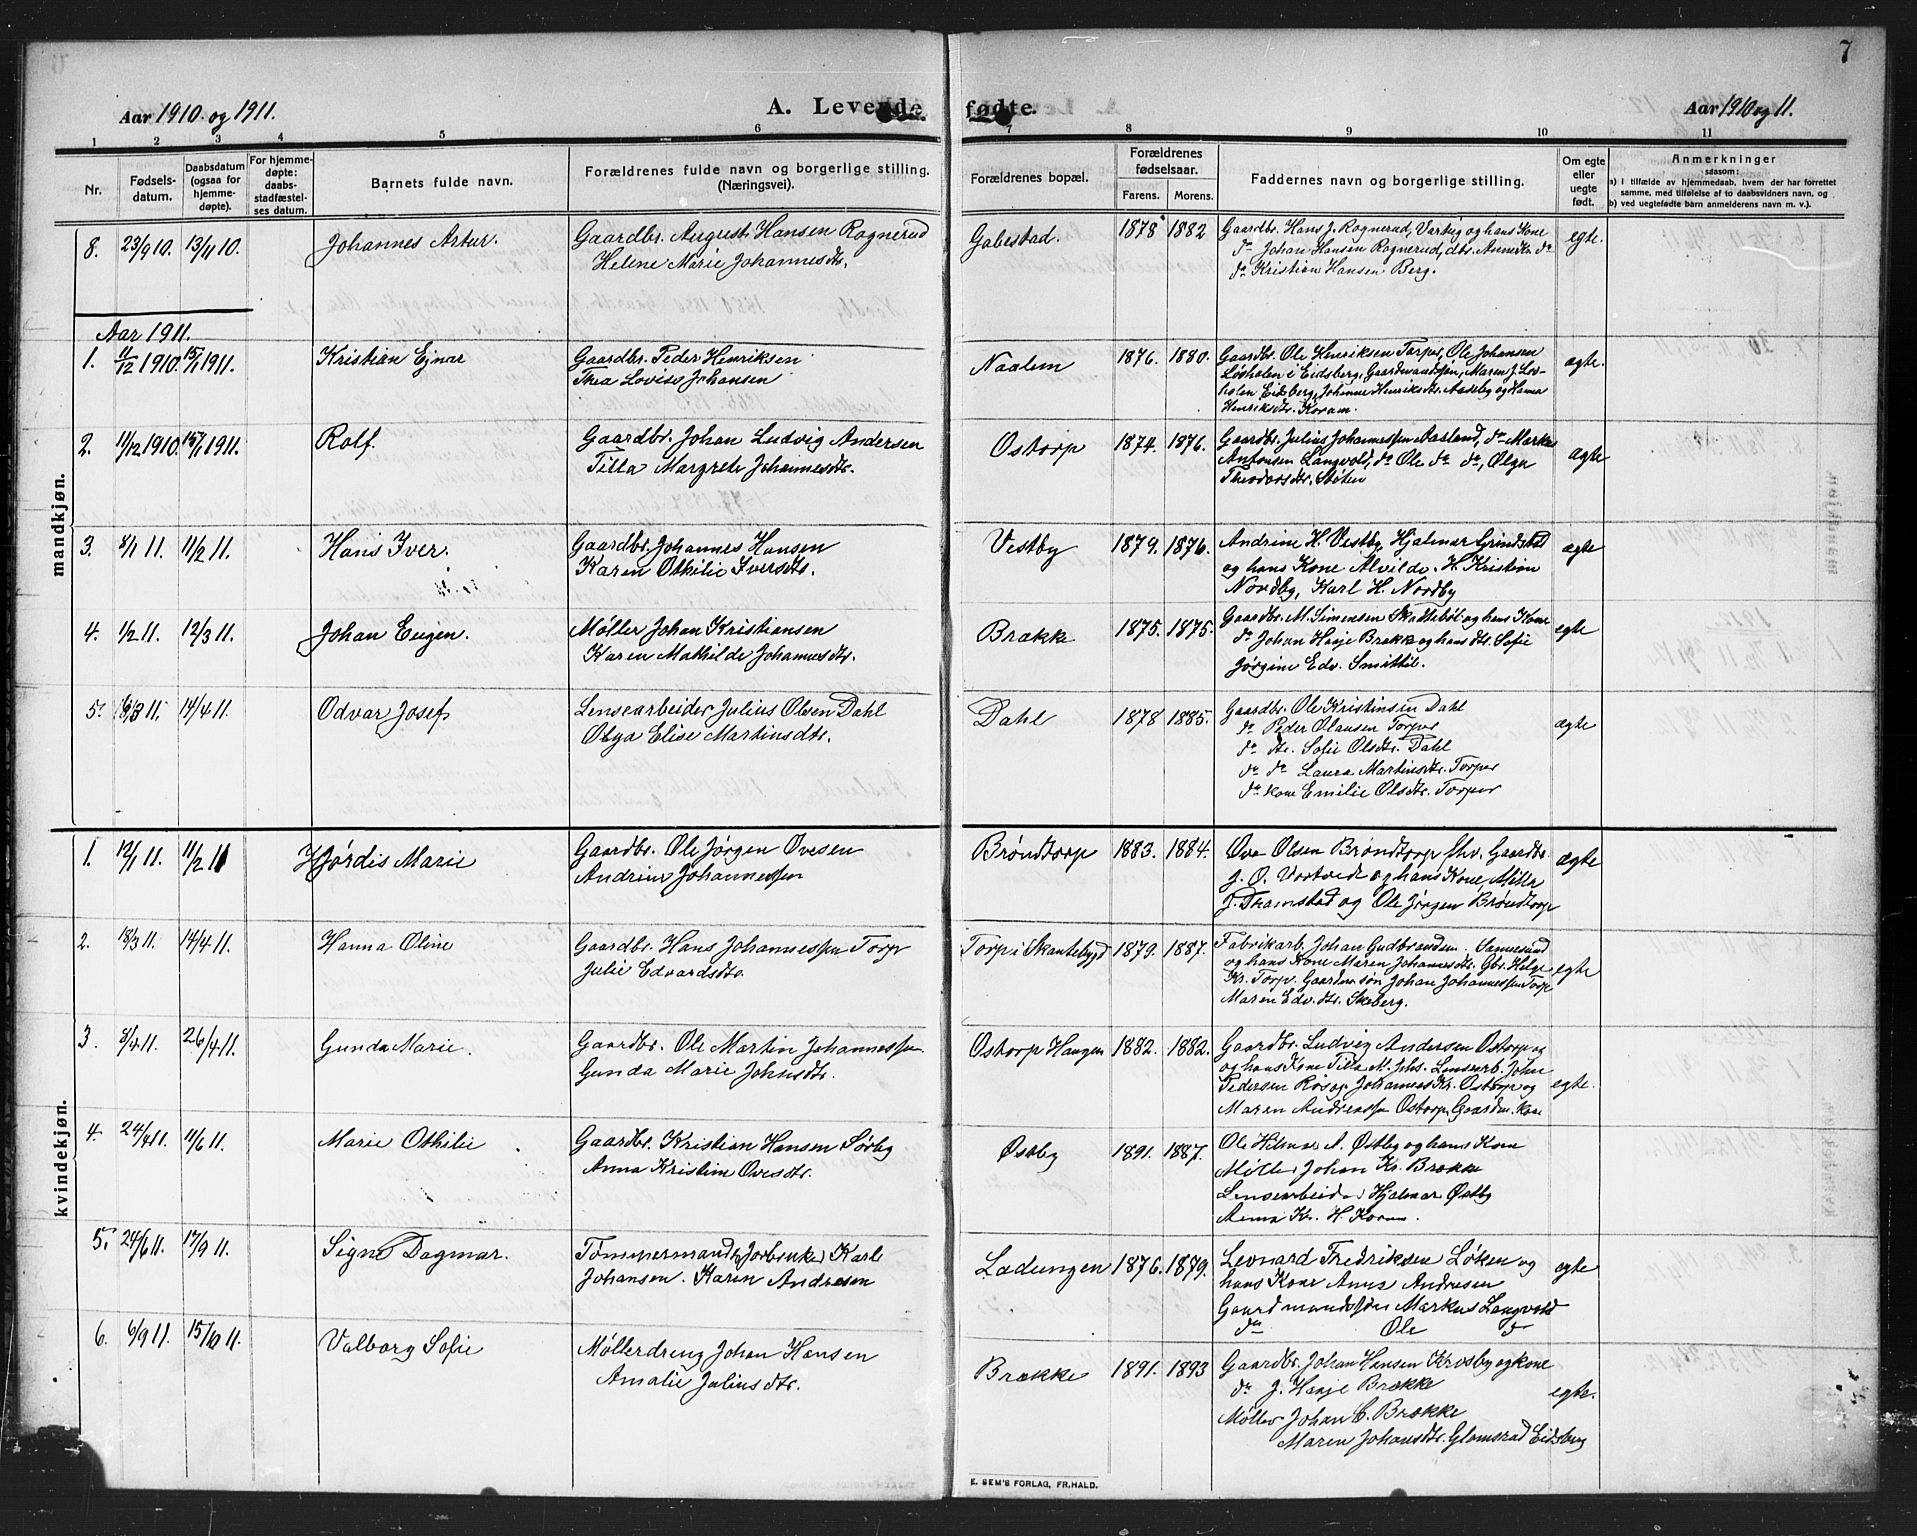 7
Aar 1910 og 1911.
A. Levende fødte.
Aar 1910 og 11.
1 2 3 4 5 6 7 8 9 10 11
Nr.
Fødsels-
datum.
Daabsdatum
(ogsaa for
hjemme-
døpte).
For hjemme-
døpte:
daabs-
stadfæstel-
ses datum.
Barnets fulde navn.
Forældrenes fulde navn og borgerlige stilling.
(Næringsvei).
Forældrenes bopæl.
Forældrenes
fødselsaar.
Farens. Morens.
Faddernes navn og borgerlige stilling.
Om egte
eller
uegte
født.
Anmerkninger
saasom:
a) i tilfælde av hjemmedaab, hvem der har forrettet
samme, med tilføielse af to daabsvidners navn, og
b) ved uegtefødte barn anmelderens navn m. v.).
mandkjøn.
8. 23/9 10. 13/11 10. Johannes Artur.
Gaardbr. August Hansen Rognerud
Helene Marie Johannesdtr.
Gabestad. 1878 1882
Gaardbr. Hans J. Rognerud, Varteig og hans Kone
do Johan Hansen Rognerud, dbr. Anne Kr. do
do Kristian Hansen Berg.
egte.
Aar 1911.
1. 11/12 1910. 15/1 1911. Kristian Ejnar
Gaardbr. Peder Henriksen
Thea Lovise Johansen
Naalem 1876. 1880.
Gaardbr. Ole Henriksen Torper, Ole Johansen
Løvholen i Eidsberg, Gaardmandssøn, Maren J. Løv-
holen Eidsberg, Johanne Henriksdtr. Aaseby og Hanna
Henriksdtr. Koram.
ægte.
2. 11/12 1910. 15/1 1911. Rolf.
Gaardbr. Johan Ludvig Andersen
Tilla Margrete Johannesdtr.
Ostorp 1874. 1876.
Gaardbr. Julius Johannessen Aasland, do Markus
Antonsen Langvold, do Ole do do, Olga
Theodorsdtr. Støten
ægte
3. 8/1 11. 11/2 11. Hans Iver.
Gaardbr. Johannes Hansen
Karen Othilie Iversdtr.
Vestby 1879. 1876.
Andrine H. Vestby, Hjalmar Grindstad
og hans Kone Alvilde. H. Kristian
Nordby, Karl H. Nordby
ægte
4. 1/2 11. 12/3 11. Johan Eugen.
Møller Johan Kristiansen
Karen Mathilde Johannesdtr.
Brække 1875. 1875.
Gaardbr. M. Simensen Skattebøl og hans Kone
do Johan Haaje Brække og hans dtr. Sofie
Jørgine Edv. Smittil.
egte
5. 6/3 11. 14/4 11. Odvar Josef
Lensearbeider Julius Olsen Dahl
Olga Elise Martinsdtr.
Dahl 1878 1885.
Gaardbr. Ole Kristinsen Dahl
do Peder Olausen Torper
do dtr. Sofie Olsdtr. Dahl
do do Laura Martinsdtr. Torper
do Kone Emilie Olsdtr. Torper
ægte
kvindekjøn.
1. 12/1 11. 11/2 11 Hjørdis Marie
Gaardbr. Ole Jørgen Ovesen
Andrine Johannessen
Brøndtorp 1883. 1884.
Ove Olsen Brøndtorp fhv. Gaardbr.
J. O. Vortvedt og hans Kone, Møller
J. Thomstad og Ole Jørgen Brøndtorp
ægte
2. 18/3 11. 14/4 11. Hanna Oline
Gaardbr. Hans Johannessen Torp
Julie Edvardsdtr.
Torp i Skantebygd 1879. 1887.
Fabrikarb. Johan Gudbrandsen. Sannesund
og hans Kone Maren Johannesdtr. Gbr. Helge
Kr. Torp. Gaardmsøn Johan Johannessen Torp
Maren Edv.dtr. Skeberg.
egte
3. 8/4 11. 26/4 11. Gunda Marie.
Gaardbr. Ole Martin Johannessen
Gunda Marie Johnsdtr.
Ostorp Haugen 1882. 1882.
Gaardbr. Ludvig Andersen Ostorp og
og hans Kone Tilla M. Jhs. Lensearb. John
Pedersen Røs og Johannes Kr. Ostorp og
Maren Andreassen Ostorp, Gaardm. Kone
egte.
4. 24/4 11. 11/6 11. Marie Othilie
Gaardbr. Kristian Hansen Sørby
Anna Kristine Ovesdtr.
Østby 1891. 1887.
Ole Hilmar A. Østby og hans Kone
Møller Johan Kr. Brække
Lensearbeider Hjalmar Østby
Anna Kr. H. Koram.
5. 24/6 11. 17/9 11. Signe Dagmar.
Tømmermand Karl
Johansen. Karen Andresen
Ladungen 1876. 1879.
Leonard Fredriksen Løken og
hans Kone Anna Andresen
Gaardmandssøn Markus Langvold
do Ole do
egte
6. 6/9 11. 15/10 11. Valborg Sofie
Møllerdreng Johan Hansen
Amalie Juliusdtr.
Brække 1891. 1893
Gaardbr. Johan Hansen Krosby og kone
do J. Haaje Brække
Møller Johan C. Brække
Maren Johansdtr. Glomsrød Eidsberg
egte.
E. SEM'S FORLAG, FR.HALD.